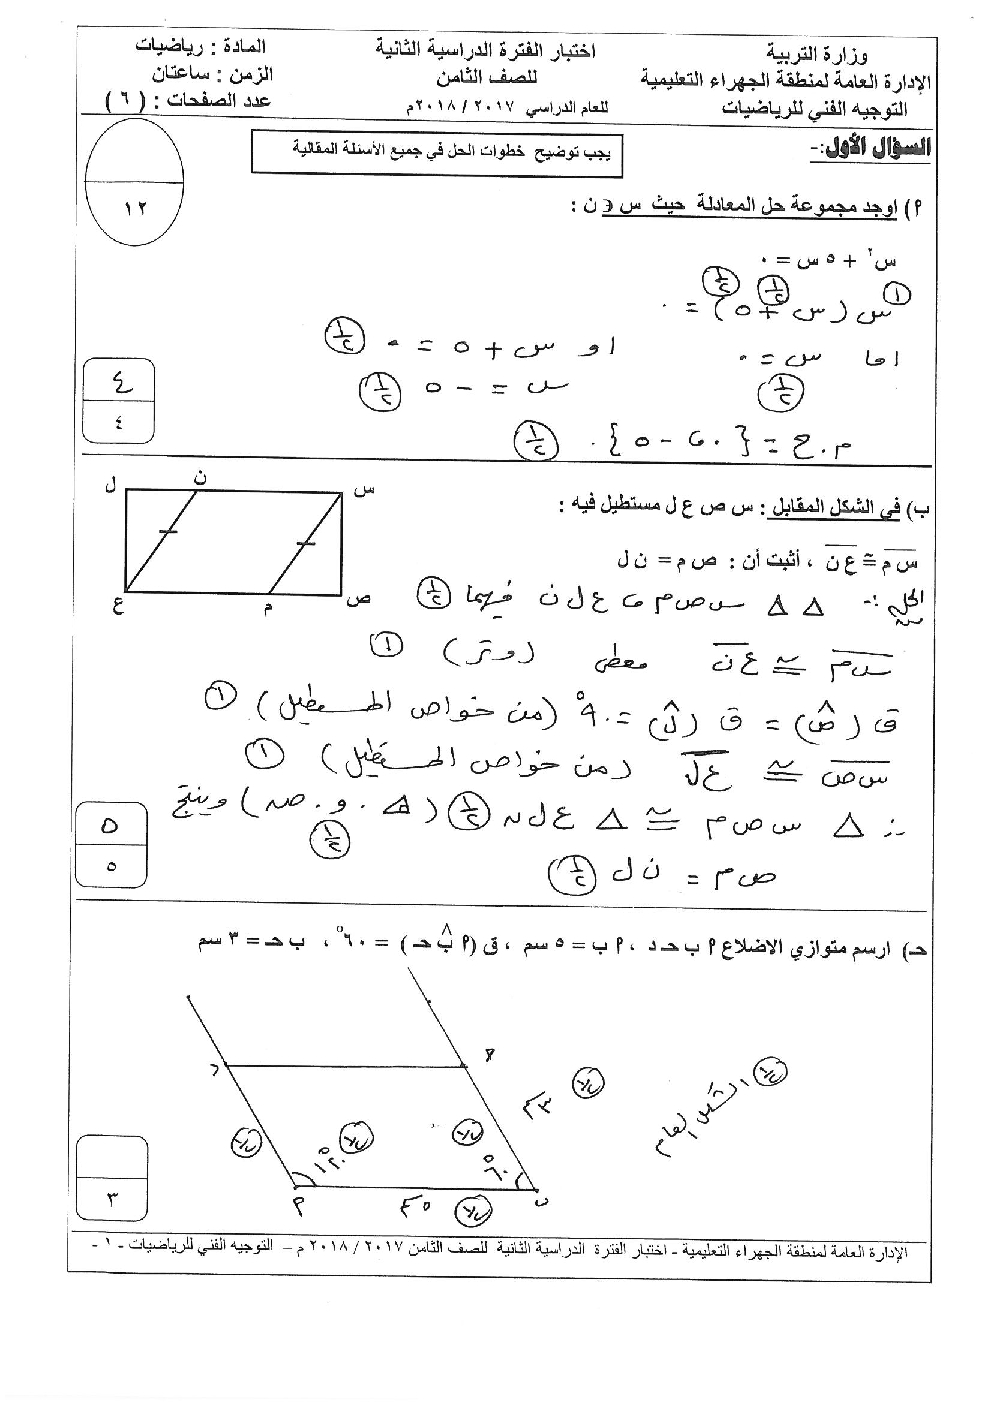 وزارة التربية
الإدارة العامة لمنطقة الجهراء التعليمية
التوجيه الفني للرياضيات
اختبار الفترة الدراسية الثانية
للصف الثامن
للعام الدراسي ٢٠١٧ / ٢٠١٨م
المادة : رياضيات
الزمن : ساعتان
عدد الصفحات : ( ٦ )
السؤال الأول:-
يجب توضيح خطوات الحل في جميع الأسئلة المقالية
١٢
٩) اوجد مجموعة حل المعادلة حيث س ∈ ن :
س٢ + ٥ س = ٠
س (س + ٥) = ٠
١
١/٢
١/٢
اما س = ٠ او س + ٥ = ٠ ١/٢
١/٢
س = - ٥ ١/٢
م . ح = { ٠ ، - ٥ } . ١/٢
٤
٤
ب) في الشكل المقابل : س ص ع ل مستطيل فيه :
س م ≅ ع ن ، أثبت أن : ص م = ن ل
ل ن س
ع م ص
الحل :- Δ Δ س ص م ، ع ل ن فيهما ١/٢
س م ≅ ع ن معطى (وتر) ١
ق (ص) = ق (ل) = ٩٠° (من خواص المستطيل) ١
س ص ≅ ع ل (من خواص المستطيل) ١
∴ Δ س ص م ≅ Δ ع ل ن ١/٢ (ـه . و . ض) وينتج
١/٢
ص م = ن ل ١/٢
٥
٥
حـ) ارسم متوازي الاضلاع ٩ ب حـ د ، ٩ ب = ٥ سم ، ق (٩ ب حـ) = ٦٠° ، ب حـ = ٣ سم
د حـ
٣سم ١/٢
الشكل العام ١/٢
١/٢
١٢٠° ١/٢
١/٢ ٦٠°
٩ ٥سم ١/٢ ب
٣
الإدارة العامة لمنطقة الجهراء التعليمية - اختبار الفترة الدراسية الثانية للصف الثامن ٢٠١٧ / ٢٠١٨ م – التوجيه الفني للرياضيات - ١ -